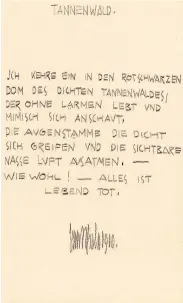 TANNENWALD.
ICH KEHRE EIN IN DEN ROTSCHWARZEN
DOM DES DICHTEN TANNENWALDES,
DER OHNE LÄRMEN LEBT UND
MIMISCH SICH ANSCHAUT,
DIE AUGENSTAMME DIE DICHT
SICH GREIFEN UND DIE SICHTBARE
NASSE LUFT AUSATMEN. —
WIE WOHL! — ALLES IST
LEBEND TOT.